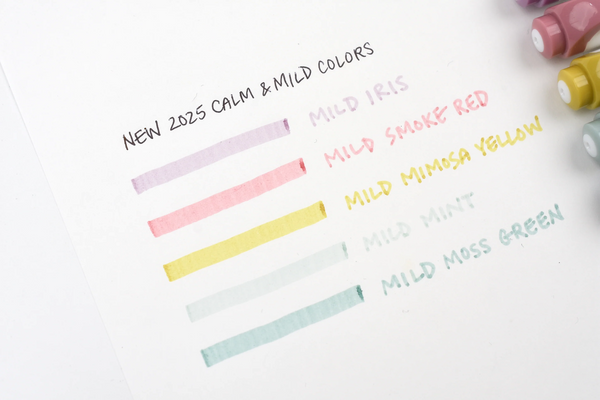 NEW 2025 CALM & MILD COLORS
MILD IRIS
MILD SMOKE RED
MILD MIMOSA YELLOW
MILD MINT
MILD MOSS GREEN